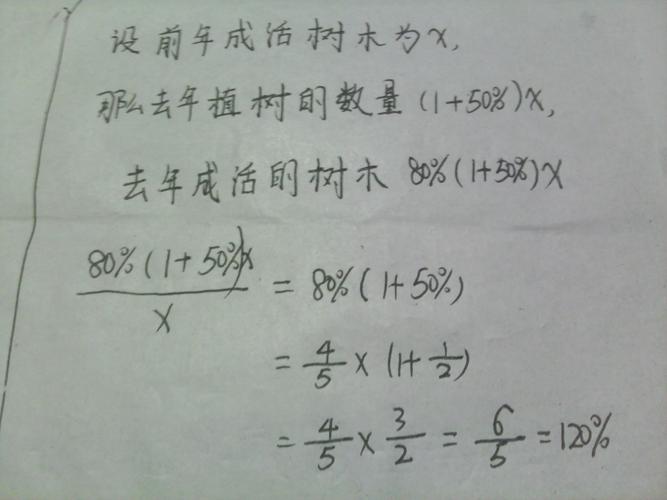 设前年成活树木为x,
那么去年植树的数量(1+50%)x,
去年成活的树木 80%(1+50%)x
80%(1+50%)x/x = 80%(1+50%)
= 4/5 × (1+1/2)
= 4/5 × 3/2 = 6/5 = 120%